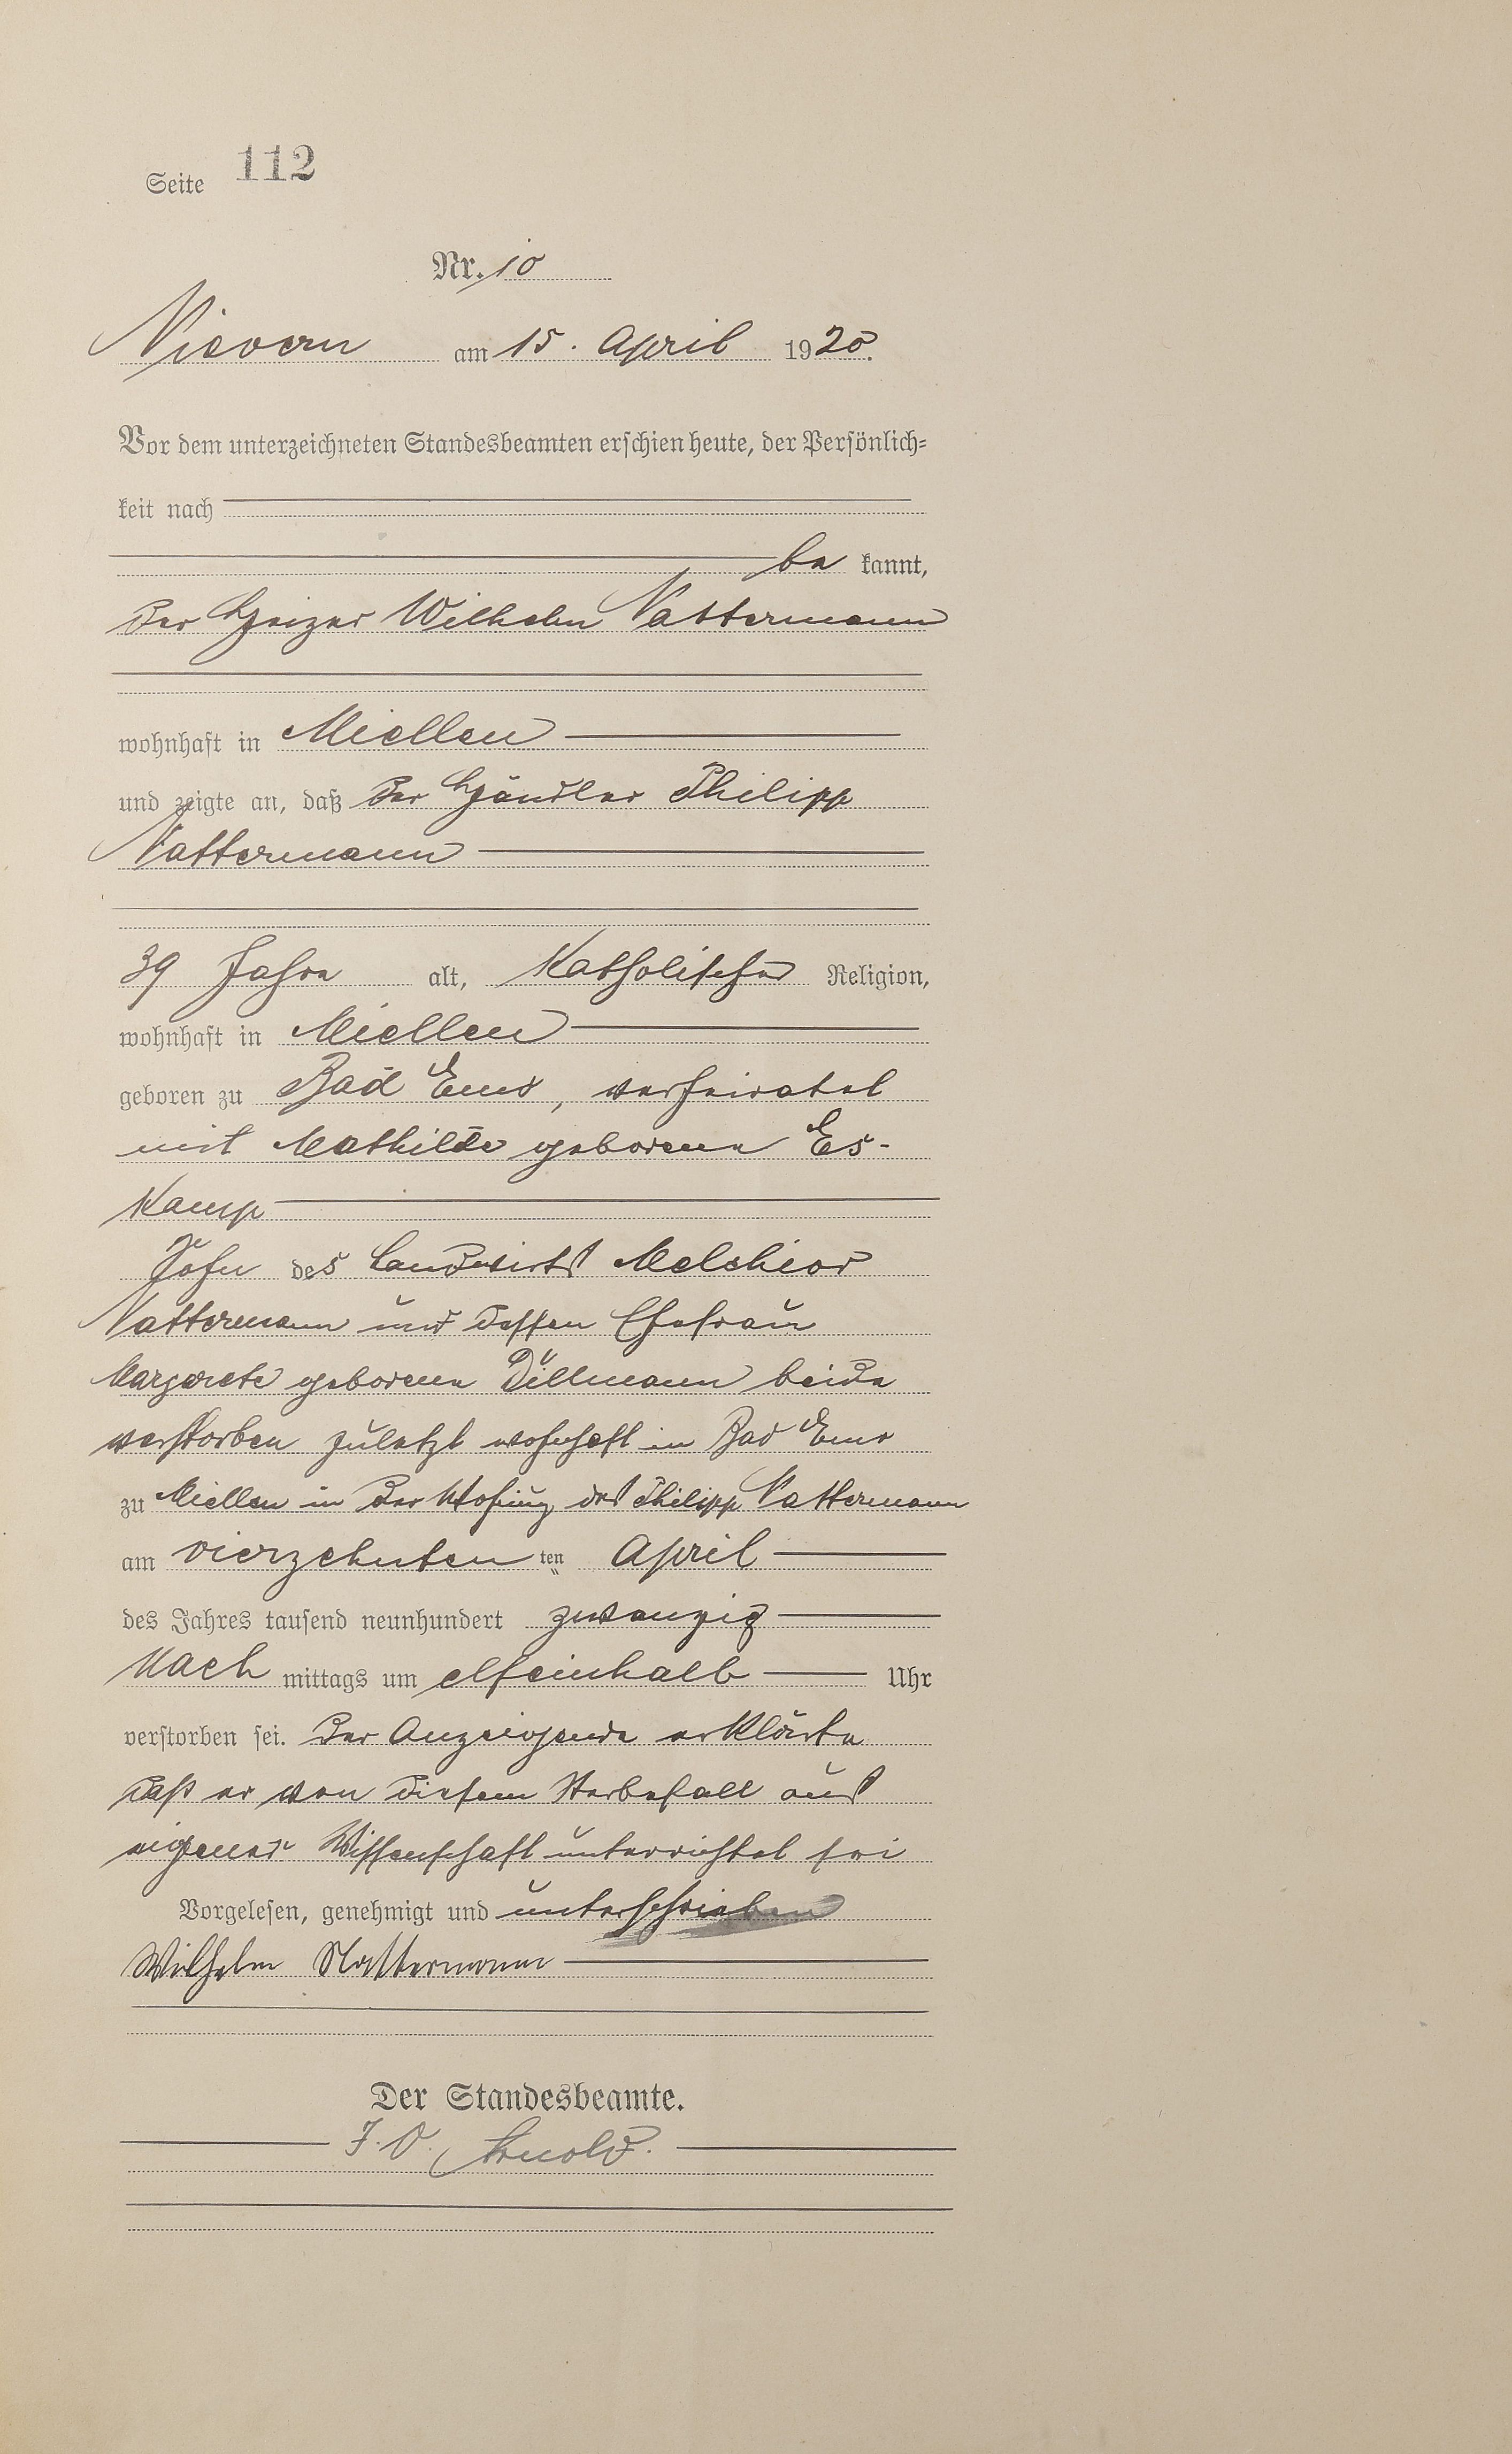 Seite 112
Nr. 10
Nievern am 15. April 1920.
Vor dem unterzeichneten Standesbeamten erschien heute, der Persönlich-
keit nach
be kannt,
der Heizer Wilhelm Nattermann
wohnhaft in Miellen
und zeigte an, daß der Händler Philipp
Nattermann
39 Jahre alt, Katholischer Religion,
wohnhaft in Miellen
geboren zu Bad Ems, verheiratet
mit Mathilde geborene Es-
kamp
Sohn des Landwirts Melchior
Nattermann und dessen Ehefrau
Margerete geborene Dillmann beide
verstorben zuletzt wohnhaft in Bad Ems
zu Miellen in der Wohnung des Philipp Nattermann
am vierzehnten ten April
des Jahres tausend neunhundert zwanzig
Nach mittags um elfeinhalb Uhr
verstorben sei. Der Anzeigende erklärte
daß er von diesem Sterbefall aus
eigener Wissenschaft unterrichtet sei
Vorgelesen, genehmigt und unterschrieben
Wilhelm Nattermann
Der Standesbeamte.
J. V. Arnold.